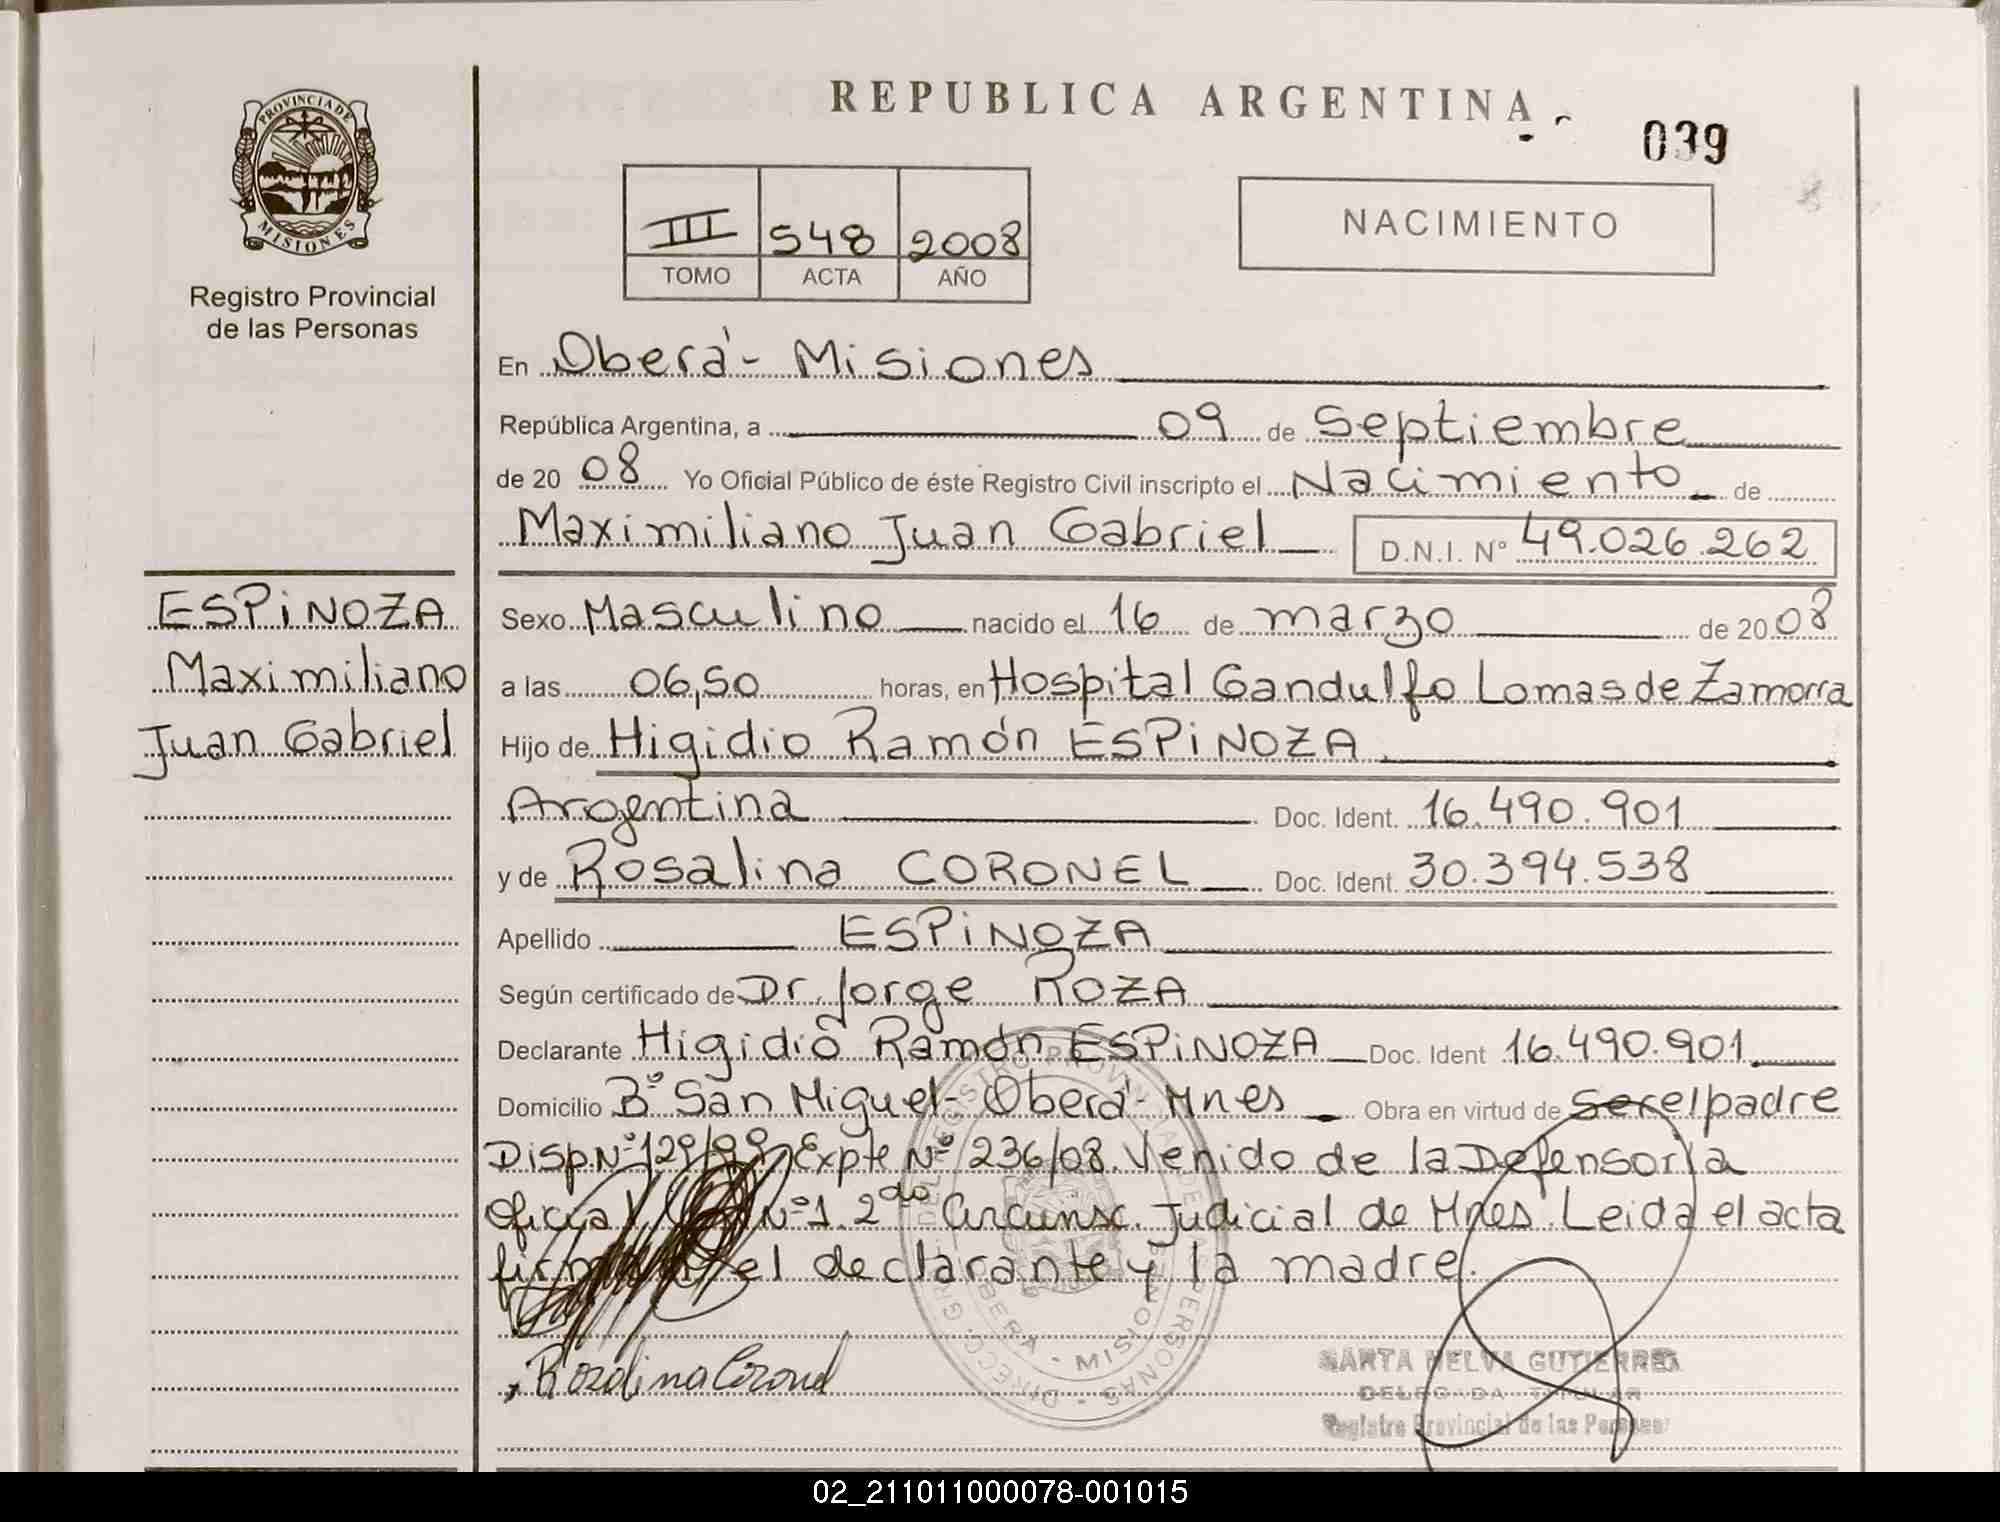 REPUBLICA ARGENTINA
039
PROVINCIA DE
MISIONES
Registro Provincial
de las Personas
III 548 2008
TOMO ACTA AÑO
NACIMIENTO
En Oberá - Misiones
República Argentina, a 09 de Septiembre
de 20 08 Yo Oficial Público de éste Registro Civil inscripto el Nacimiento de
Maximiliano Juan Gabriel D.N.I. N° 49.026.262
ESPiNOZA
Maximiliano
Juan Gabriel
Sexo Masculino nacido el 16 de marzo de 20 08
a las 06,50 horas, en Hospital Gandulfo Lomas de Zamorra
Hijo de Higidio Ramón ESPiNOZA
Argentina Doc. Ident. 16.490.901
y de Rosalina CORONEL Doc. Ident. 30.394.538
Apellido ESPiNOZA
Según certificado de Dr. Jorge ROZA
Declarante Higidio Ramón ESPiNOZA Doc. Ident 16.490.901
Domicilio B° San Miguel - Oberá - Mnes Obra en virtud de Ser el padre
Disp N° 129/99 Expte N° 236/08. Venido de la Defensoria
Oficial N° 1. 2do Circunsc. Judicial de Mnes Leida el acta
el declarante y la madre.
Rosalina Coronel
SANTA NELVA GUTIERREZ
DELEGADA TITULAR
Registro Provincial de las Personas
OBERA - MISIONES
02_211011000078-001015